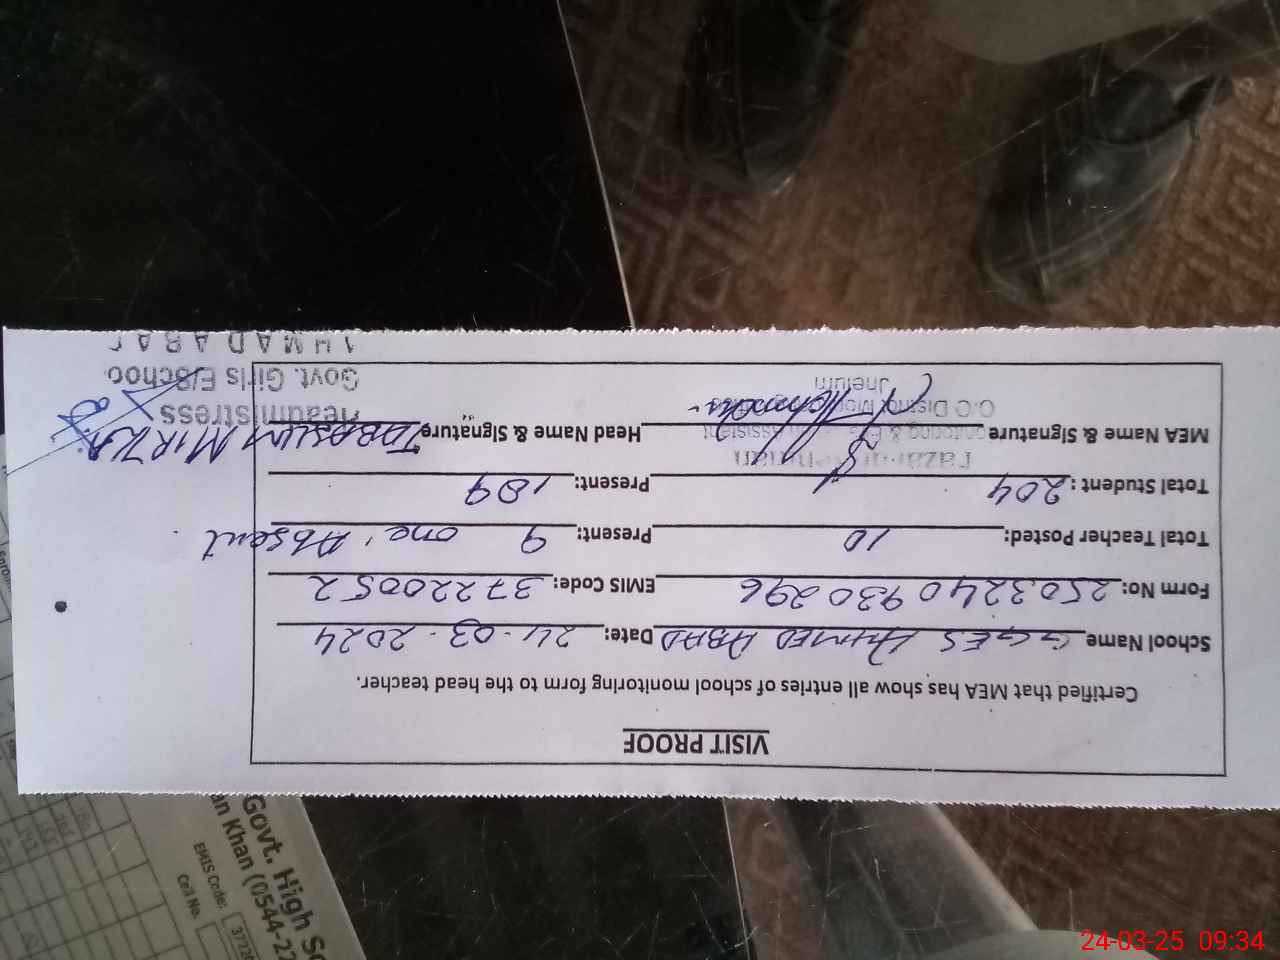 VISIT PROOF
Certified that MEA has show all entries of school monitoring form to the head teacher.
School Name GGES AHMED ABAD Date: 24-03-2024
Form No: 2503240930296 EMIS Code: 37220052
Total Teacher Posted: 10 Present: 9 one Absent.
Total Student: 204 Present: 189
MEA Name & Signature Head Name & Signature TABASUM MIRZA
Monitoring & Assistant
O.C District Mon
Jhelum
Headmistress
Govt. Girls E/School
AHMADABAD
Govt. High
an Khan (0544-22
EMIS Code: 3722
Cell No.
24-03-25 09:34